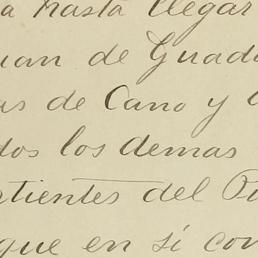 a hasta llegar
uan de Guad
as de Cano y l
dos los demas
tientes del
que en sí con